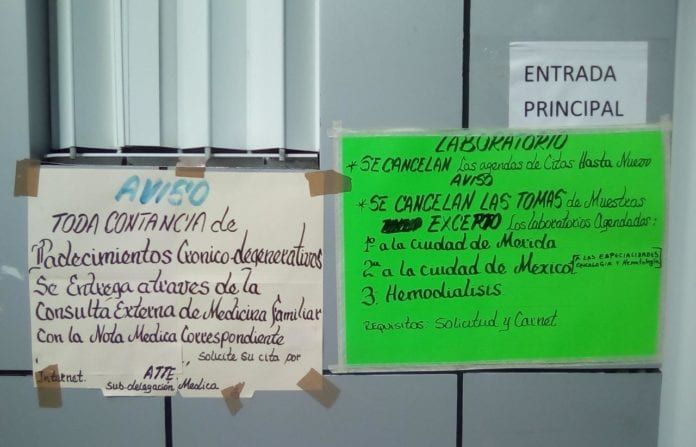 ENTRADA
PRINCIPAL
AVISO
TODA CONTANCIA de
Padecimientos Cronico-degenerativos
Se Entrega atraves de la
Consulta Externa de Medicina Familiar
con la Nota Medica Correspondiente
, solicite su cita por
Internet.
ATTE.
Sub-delegación Medica
LABORATORIO
* SE CANCELAN Las agendas de Citas Hasta Nuevo
AVISO
* SE CANCELAN LAS TOMAS de Muestras
EXCEPTO Los laboratorios Agendados:
1º a la ciudad de Merida
2ª a la ciudad de Mexico [A LAS ESPECIALIDADES
ONCOLOGIA Y Hematología]
3. Hemodialisis
REQUISITOS: Solicitud y Carnet